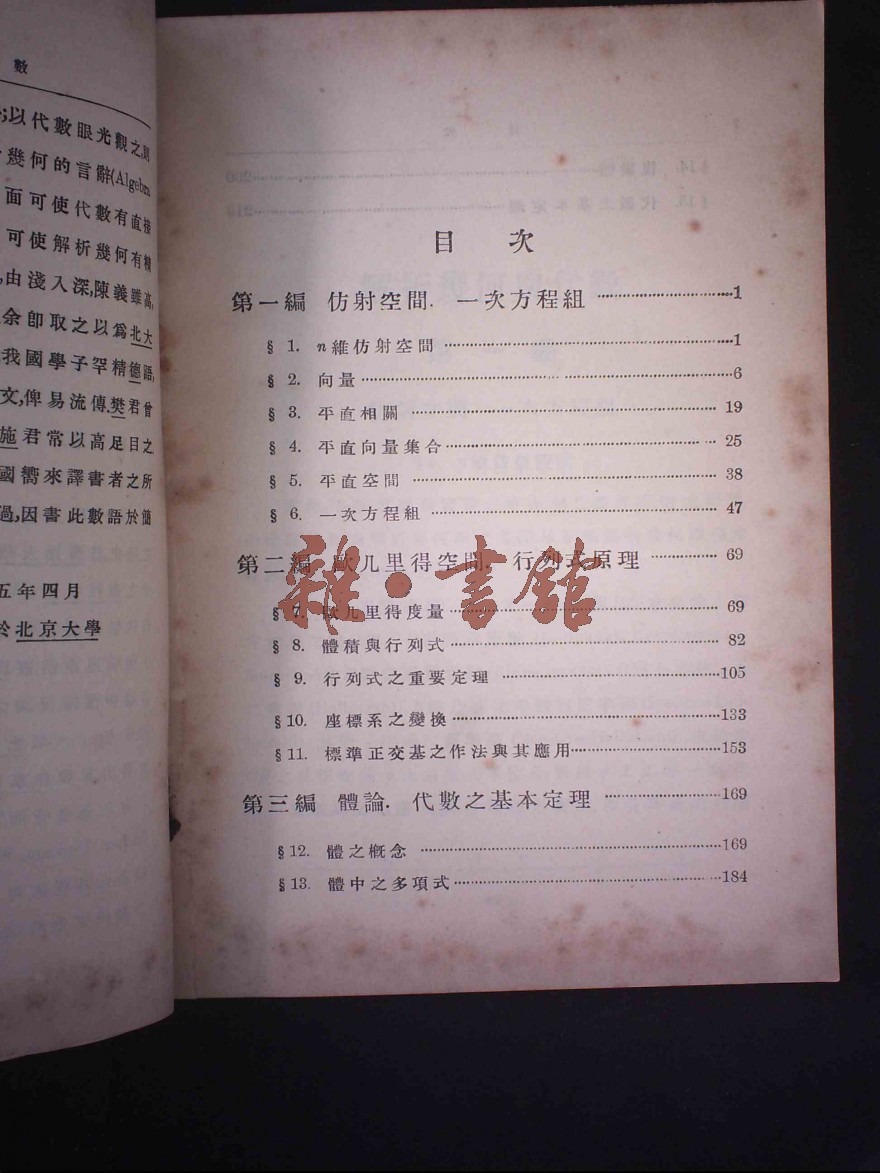 數
以代數眼光觀之,則
幾何的言辭(Algebra
面可使代數有直接
可使解析幾何有精
,由淺入深,陳義雖高,
余卽取之以爲北大
我國學子罕精德語,
文,俾易流傳.樊君曾
施君常以高足目之.
國嚮來譯書者之所
過,因書此數語於簡
五年四月
於北京大學
目 次
第一編 仿射空間. 一次方程組 ……1
§ 1. n維仿射空間 ……1
§ 2. 向量 ……6
§ 3. 平直相關 ……19
§ 4. 平直向量集合 ……25
§ 5. 平直空間 ……38
§ 6. 一次方程組 ……47
第二編 歐几里得空間. 行列式原理 ……69
§ 7. 歐几里得度量 ……69
§ 8. 體積與行列式 ……82
§ 9. 行列式之重要定理 ……105
§10. 座標系之變換 ……133
§11. 標準正交基之作法與其應用 ……153
第三編 體論. 代數之基本定理 ……169
§12. 體之概念 ……169
§13. 體中之多項式 ……184
雜·書館